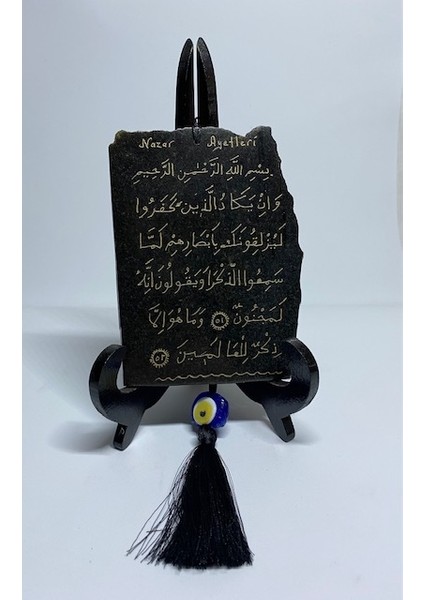 Nazar Ayetleri
بِسْمِ اللّٰهِ الرَّحْمٰنِ الرَّحِيمِ
وَاِنْ يَكَادُ الَّذِينَ كَفَرُوا
لَيُزْلِقُونَكَ بِاَبْصَارِهِمْ لَمَّا
سَمِعُوا الذِّكْرَ وَيَقُولُونَ اِنَّهُ
لَمَجْنُونٌ ٥١ وَمَا هُوَ اِلَّا
ذِكْرٌ لِلْعَالَمِينَ ٥٢